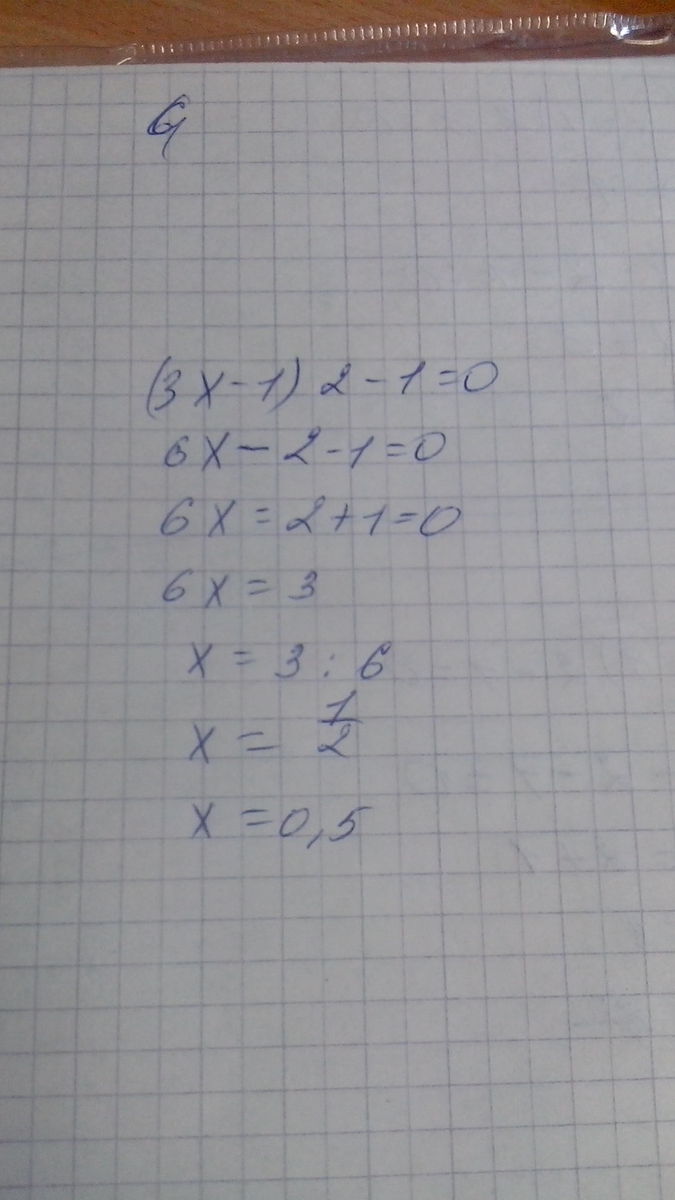 (3x-1)2-1=0
6x-2-1=0
6x=2+1=0
6x=3
x=3:6
x=1/2
x=0,5